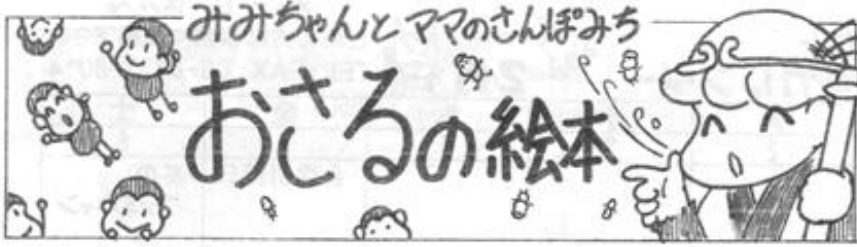 みみちゃんとママのさんぽみち
おさるの絵本